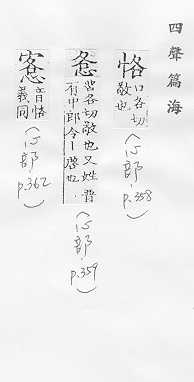 四聲篇海
恪 口各切
敬也
(心部.p.358)
愙 苦各切敬也又姓晉
有中郎令丨啓也
(心部.p.359)
音恪
義同
(心部.p.362)